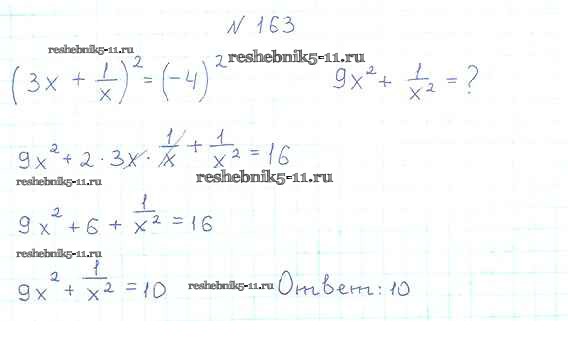 № 163
reshebnik5-11.ru
(3x + 1/x)² = (-4)² 9x² + 1/x² = ?
reshebnik5-11.ru
9x² + 2 · 3x · 1/x + 1/x² = 16
reshebnik5-11.ru reshebnik5-11.ru
9x² + 6 + 1/x² = 16
reshebnik5-11.ru
9x² + 1/x² = 10 reshebnik5-11.ru Ответ: 10